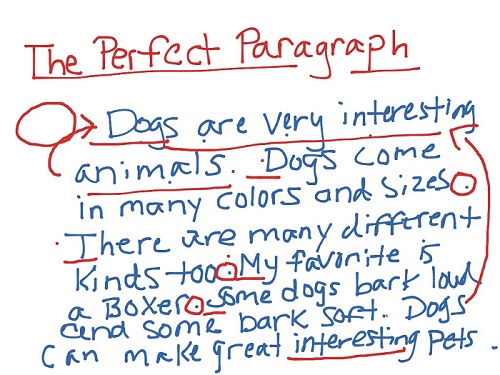 The Perfect Paragraph
Dogs are very interesting
animals. Dogs come
in many colors and sizes.
There are many different
kinds too. My favorite is
a Boxer. Some dogs bark loud
and some bark soft. Dogs
can make great interesting pets.